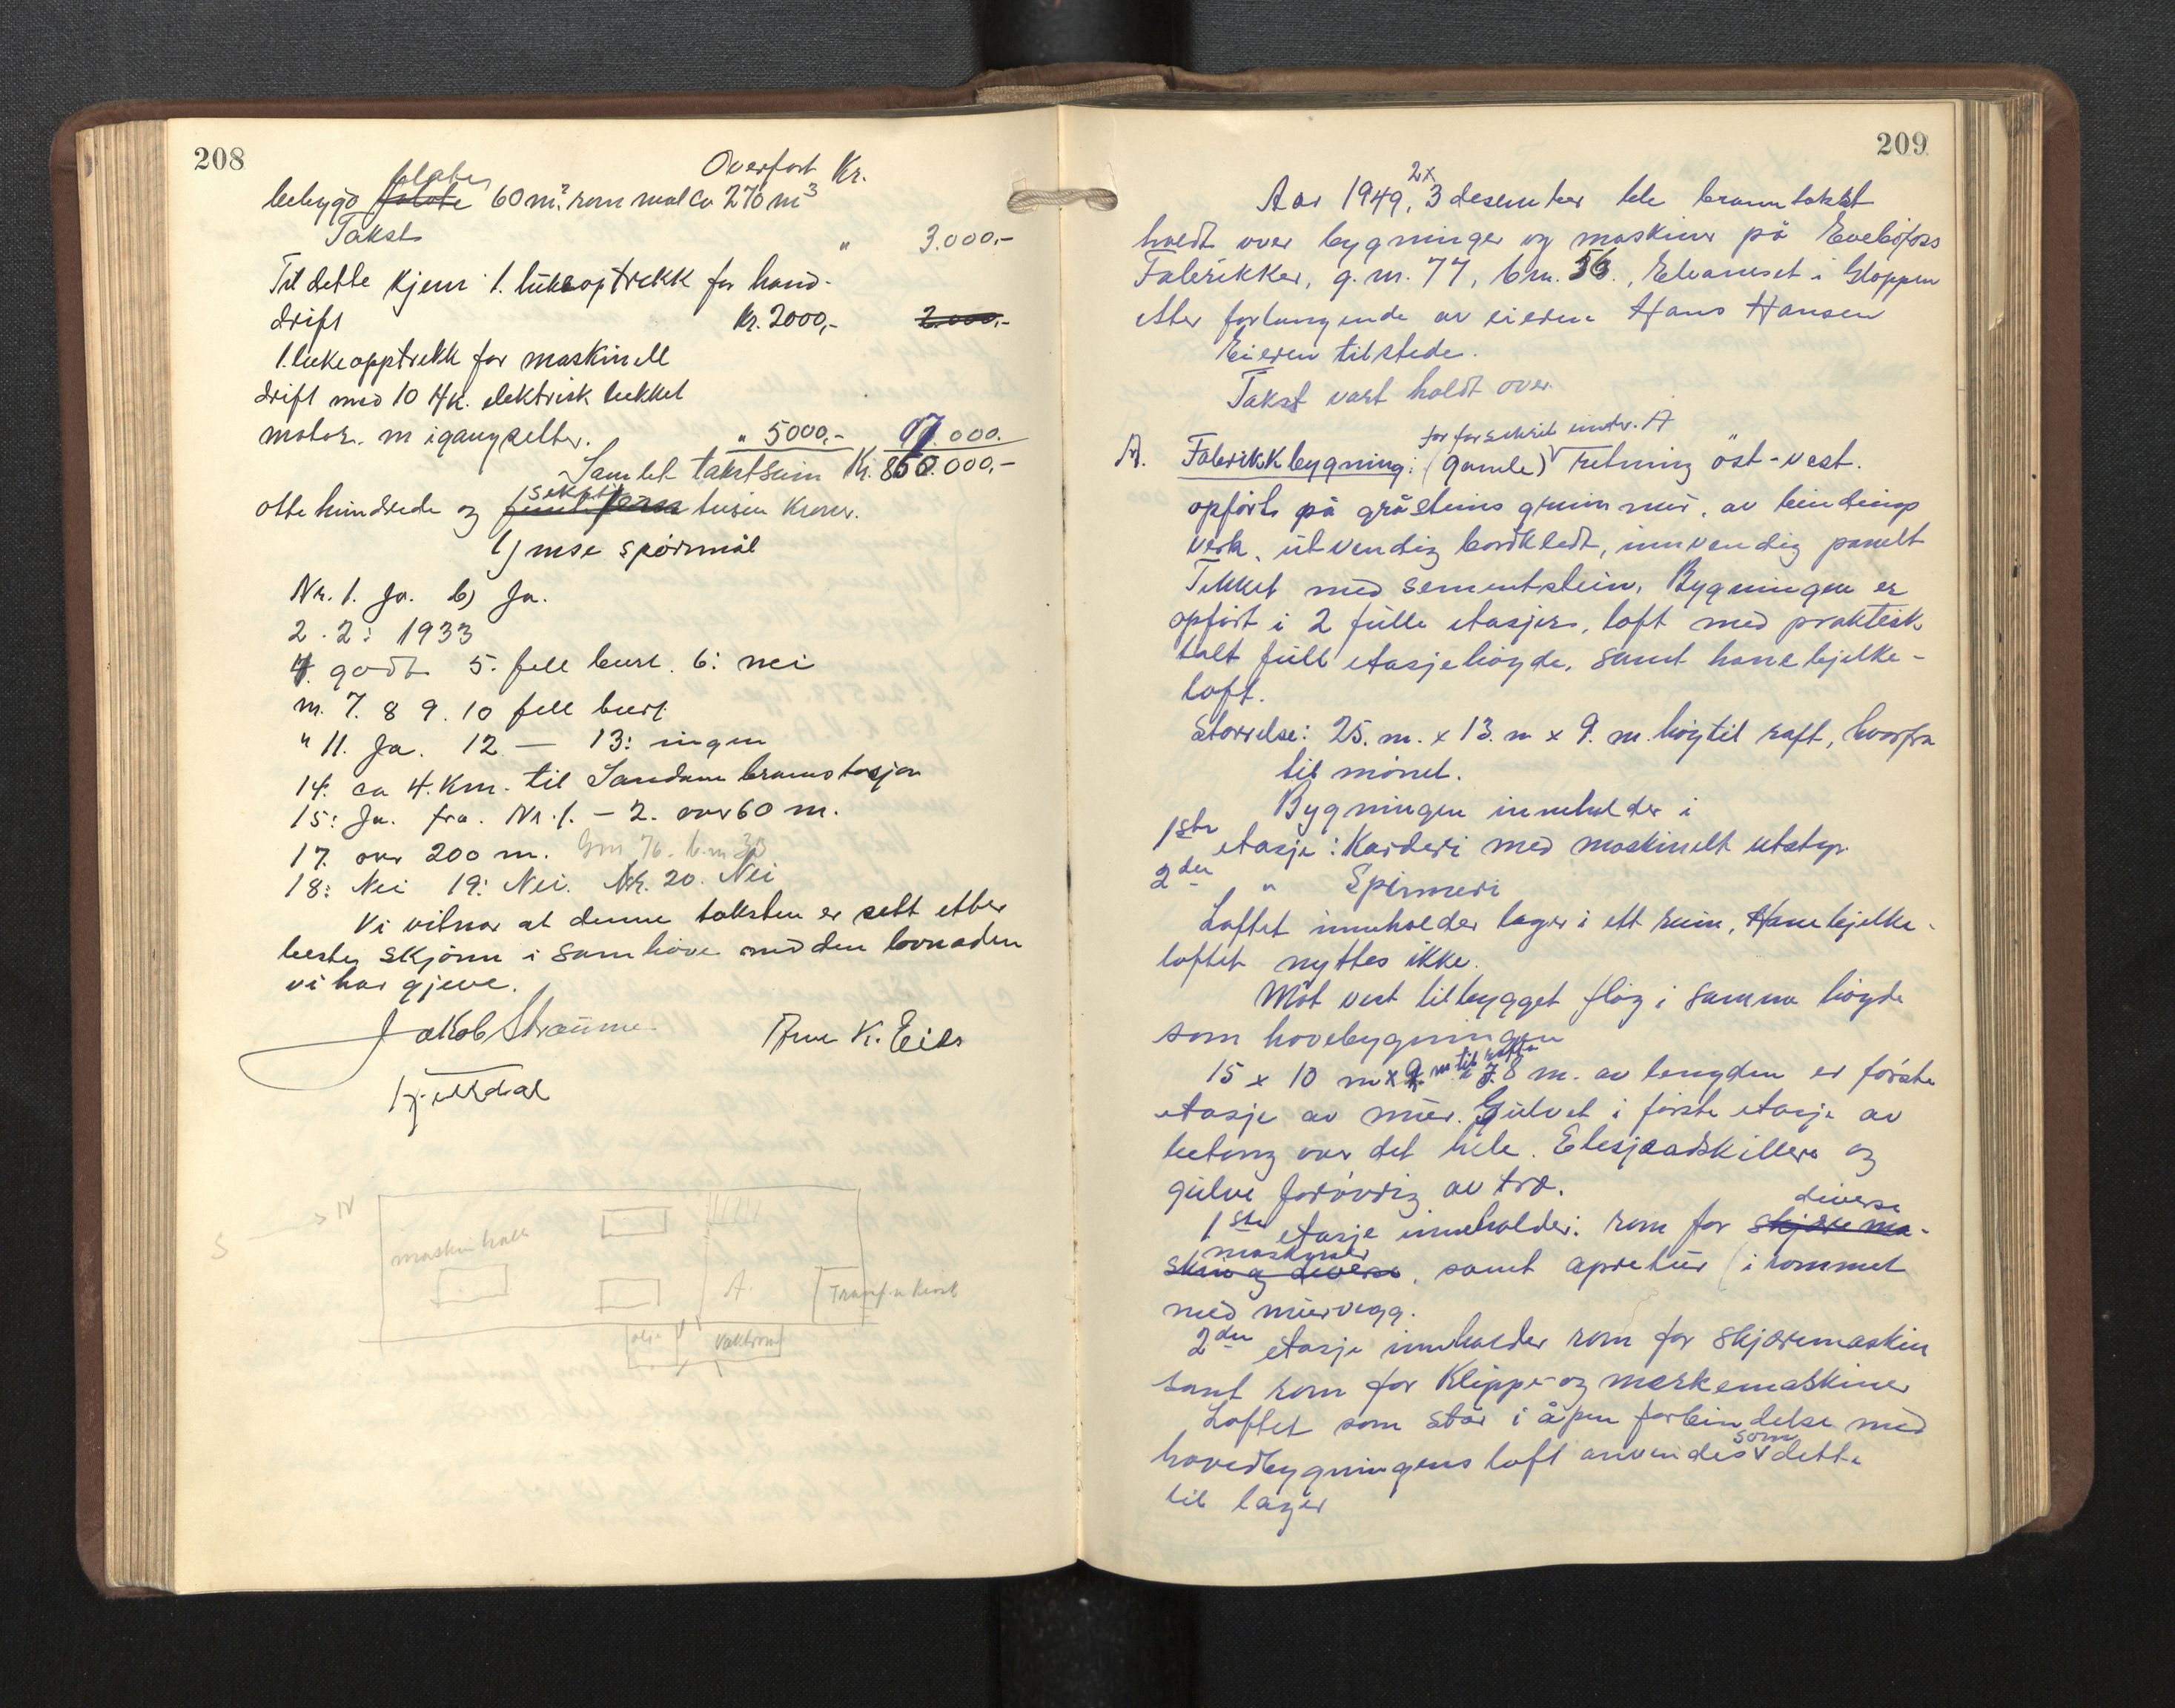 208
Overført Kr.
flate
bebygd flate 60 m². rommål ca 270 m³
Takst " 3.000,-
Til dette kjem 1. lukeoptrekk for hand-
drift Kr. 2000,- 2.000,-
1. lukeopptrekk for maskinell
drift med 10 Hk. elektrisk lukket
motor. m igangsetter. " 5000,- 7.000.
Samlet takstsum Kr. 860.000,-
seksti
otte hundrede og tusen kroner.
Ymse spörmål
Nr. 1. Ja. b) Ja.
2. 2: 1933
4. godt 5. fell burt. 6: nei
nr. 7. 8 9. 10 fell burt
" 11. Ja. 12 — 13: ingen
14. ca 4. Km. til Sandane brannstasjon
15: Ja. fra. Nr. 1. – 2. over 60 m.
17. over 200 m. Gnr 76. b.nr 33
18: Nei 19: Nei. Nr. 20. Nei
Vi vitnar at denne taksten er sett etter
beste skjönn i samhöve med den lovnaden
vi har gjeve.
Jakob Straume Arne K. Eide
S → N
maskinhall
A.
Transf.
vaktrom
209
Aar 1949, 2 x 3 desember ble branntakst
holdt over bygninger og maskiner på Evebøfoss
Fabrikker, g.nr. 77, bnr. 56., Eleaneset i Gloppen
etter forlangende av eieren Hans Hansen
Eieren tilstede.
Takst vart holdt over.
for forsikret under. A
A. Fabrikkbygning: (gamle) Retning öst-vest.
opfört på gråsteins grunnmur, av bindings
verk, utvendig bordkledt, innvendig panelt
Tekket med sementstein. Bygningen er
opfört i 2 fulle etasjer, loft med praktisk
talt full etasjehöyde, samt hanebjelke-
loft.
Storrelse: 25. m. x 13. m x 9. m. höy til raft, hvorfra
til mönet.
Bygningen inneholder i
1ste etasje: Karderi med maskinelt utstyr
2den " Spinneri
Loftet inneholder lager i ett rum, Hanebjelke-
loftet nyttes ikke.
Mot vest tilbygget flöy i samme höyde
som hovebygningen
15 x 10 m x 9. m til raft 8 m. av lengden er förste
etasje av mur. Gulvet i förste etasje av
betong over det hele. Etesjeadskillere og
gulve foröverig av tre.
diverse
1ste etasje inneholder: rom for skjære ma-
maskiner
skin og diverse, samt apretur (i rommet
med murvegg.
2den etasje inneholder rom for skjæremaskin
samt rom for klippe- og merkemaskiner
Loftet som står i åpen forbindelse med
som
hovedbygningens loft anvendes dette
til lager